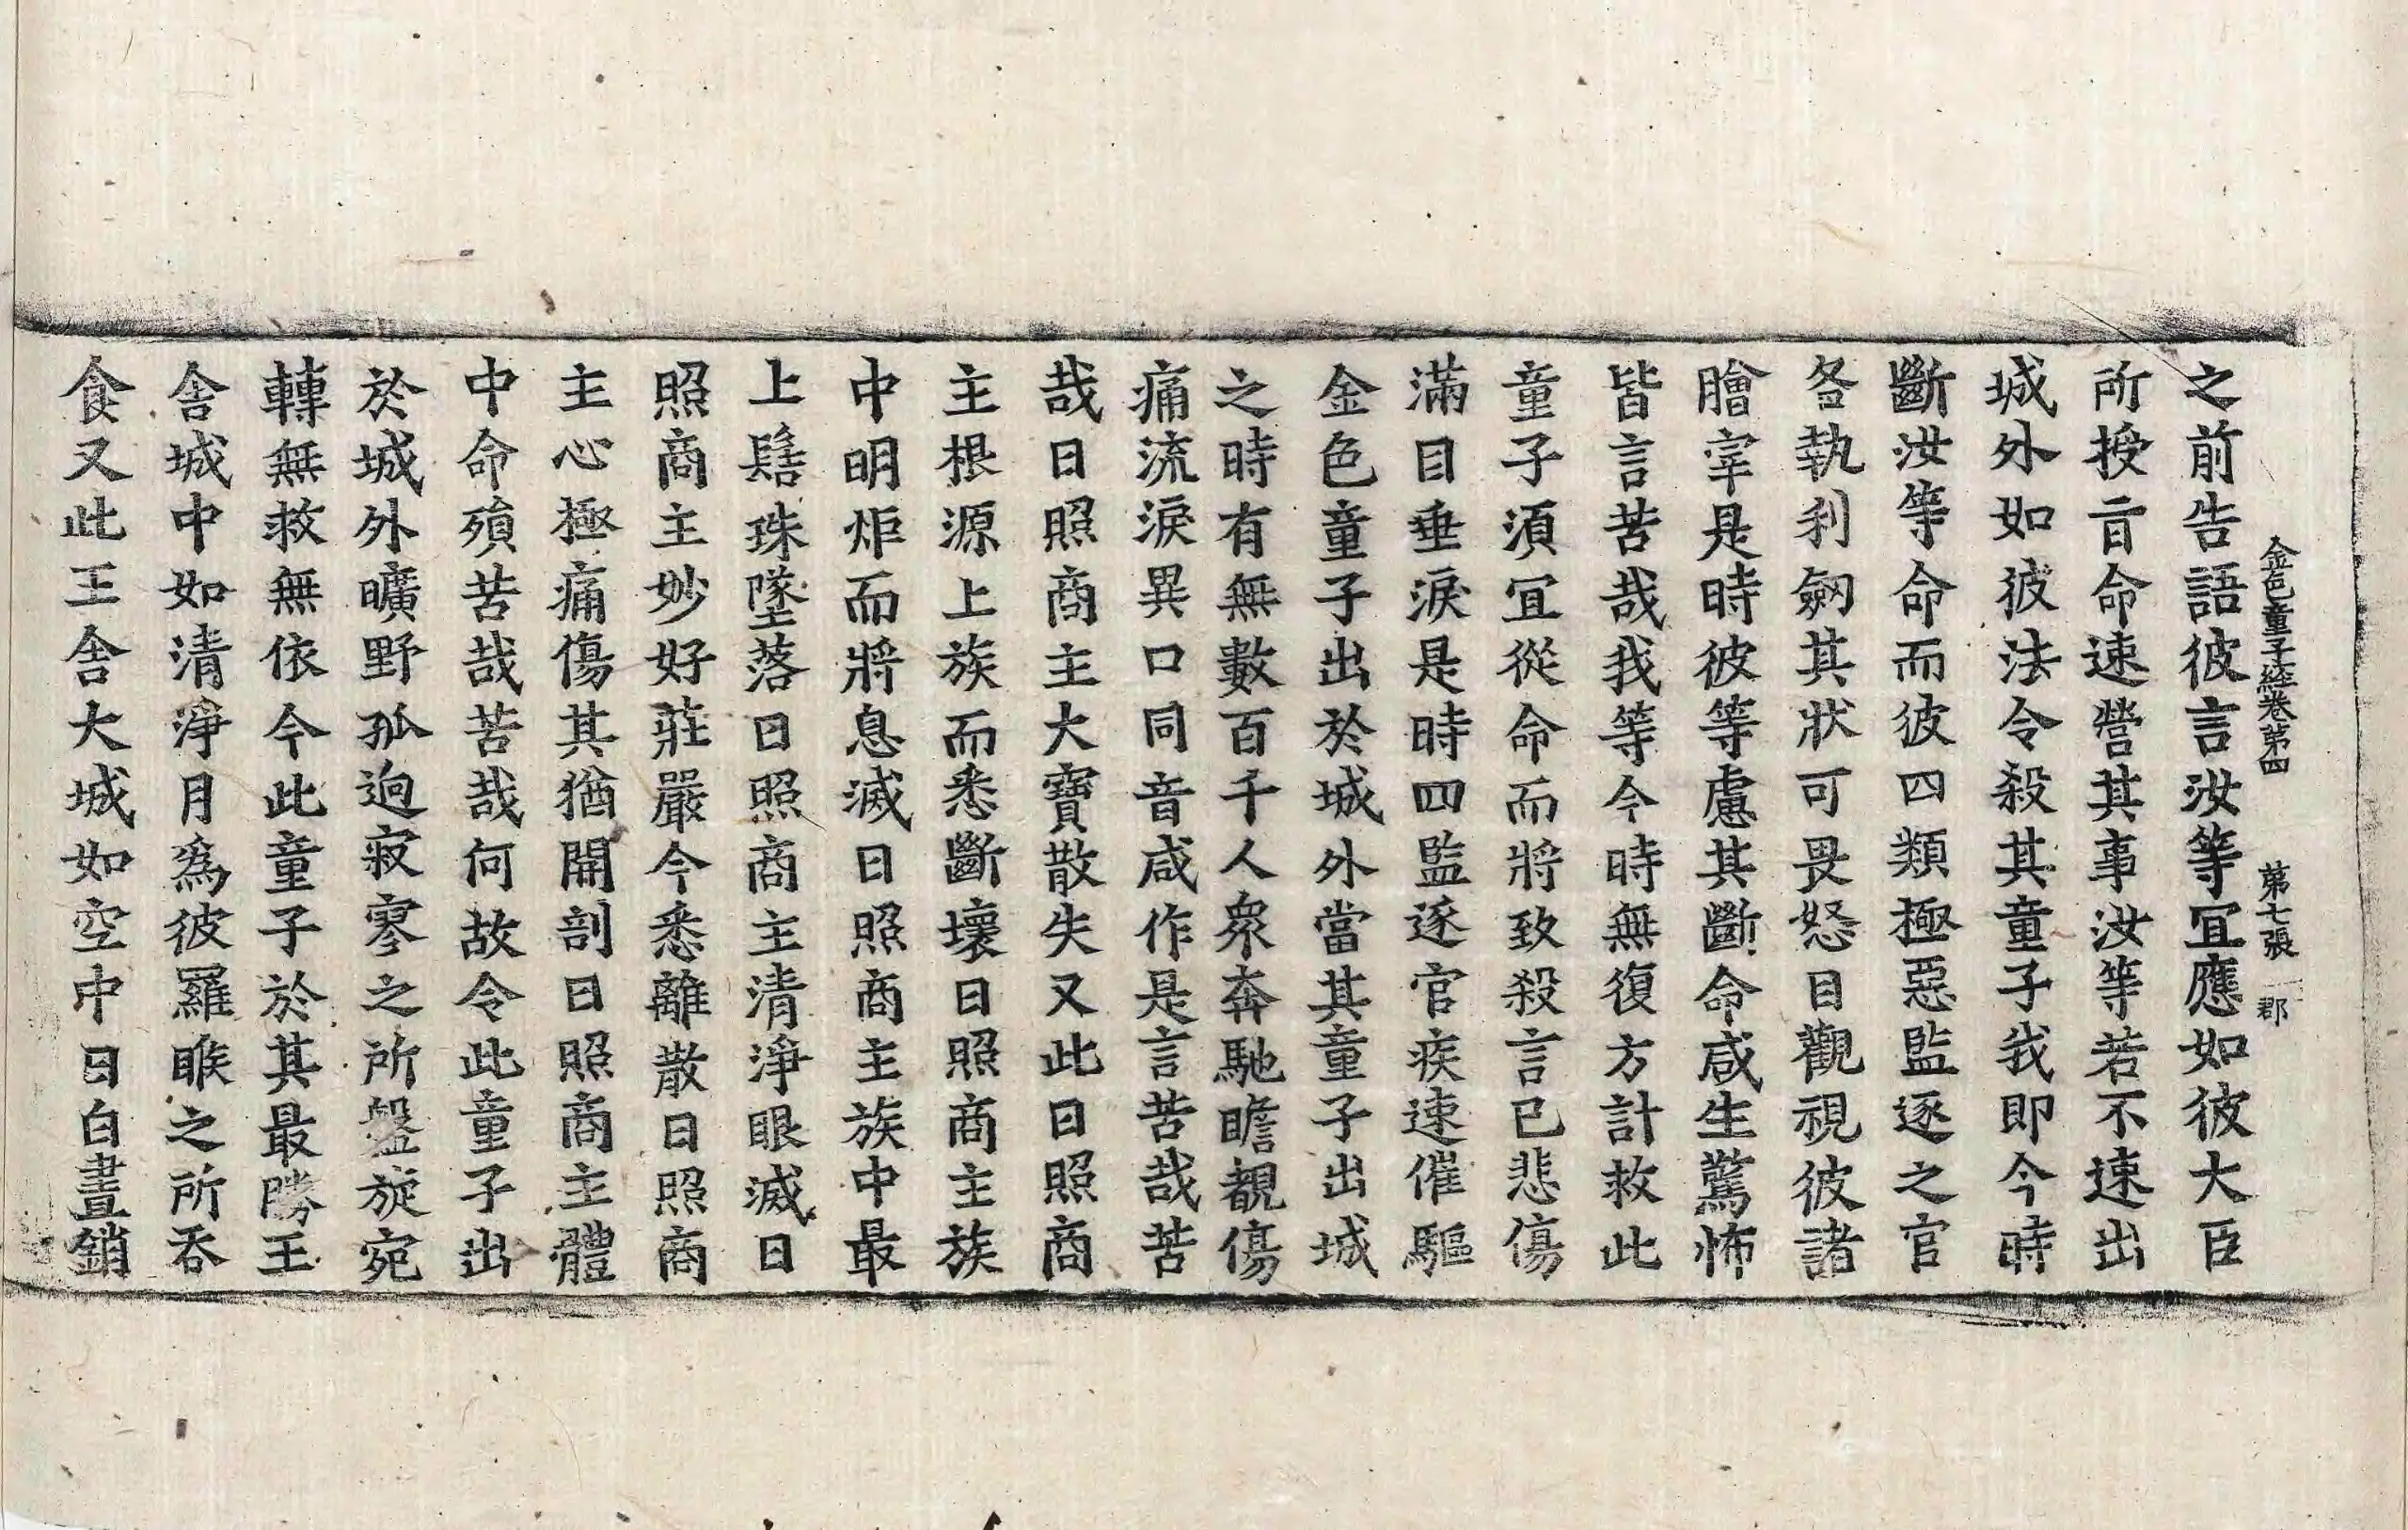 金色童子經卷第四　第七張　郡
之前告語彼言汝等宜應如彼大臣
所授旨命速營其事汝等若不速出
城外如彼法令殺其童子我即今時
斷汝等命而彼四類極惡監逐之官
各執利劒其狀可畏怒目觀視彼諸
膾宰是時彼等慮其斷命咸生驚怖
皆言苦哉我等今時無復方計救此
童子須宜從命而將致殺言已悲傷
滿目垂淚是時四監逐官疾速催驅
金色童子出於城外當其童子出城
之時有無數百千人衆奔馳瞻覩傷
痛流淚異口同音咸作是言苦哉苦
哉日照商主大寶散失又此日照商
主根源上族而悉斷壞日照商主族
中明炬而將息滅日照商主族中最
上髻珠墜落日照商主清淨眼滅日
照商主妙好莊嚴今悉離散日照商
主心極痛傷其猶開剖日照商主體
中命殞苦哉苦哉何故令此童子出
於城外曠野孤逈寂寥之所盤旋宛
轉無救無依今此童子於其最勝王
舍城中如清淨月爲彼羅睺之所吞
食又此王舍大城如空中日白晝銷